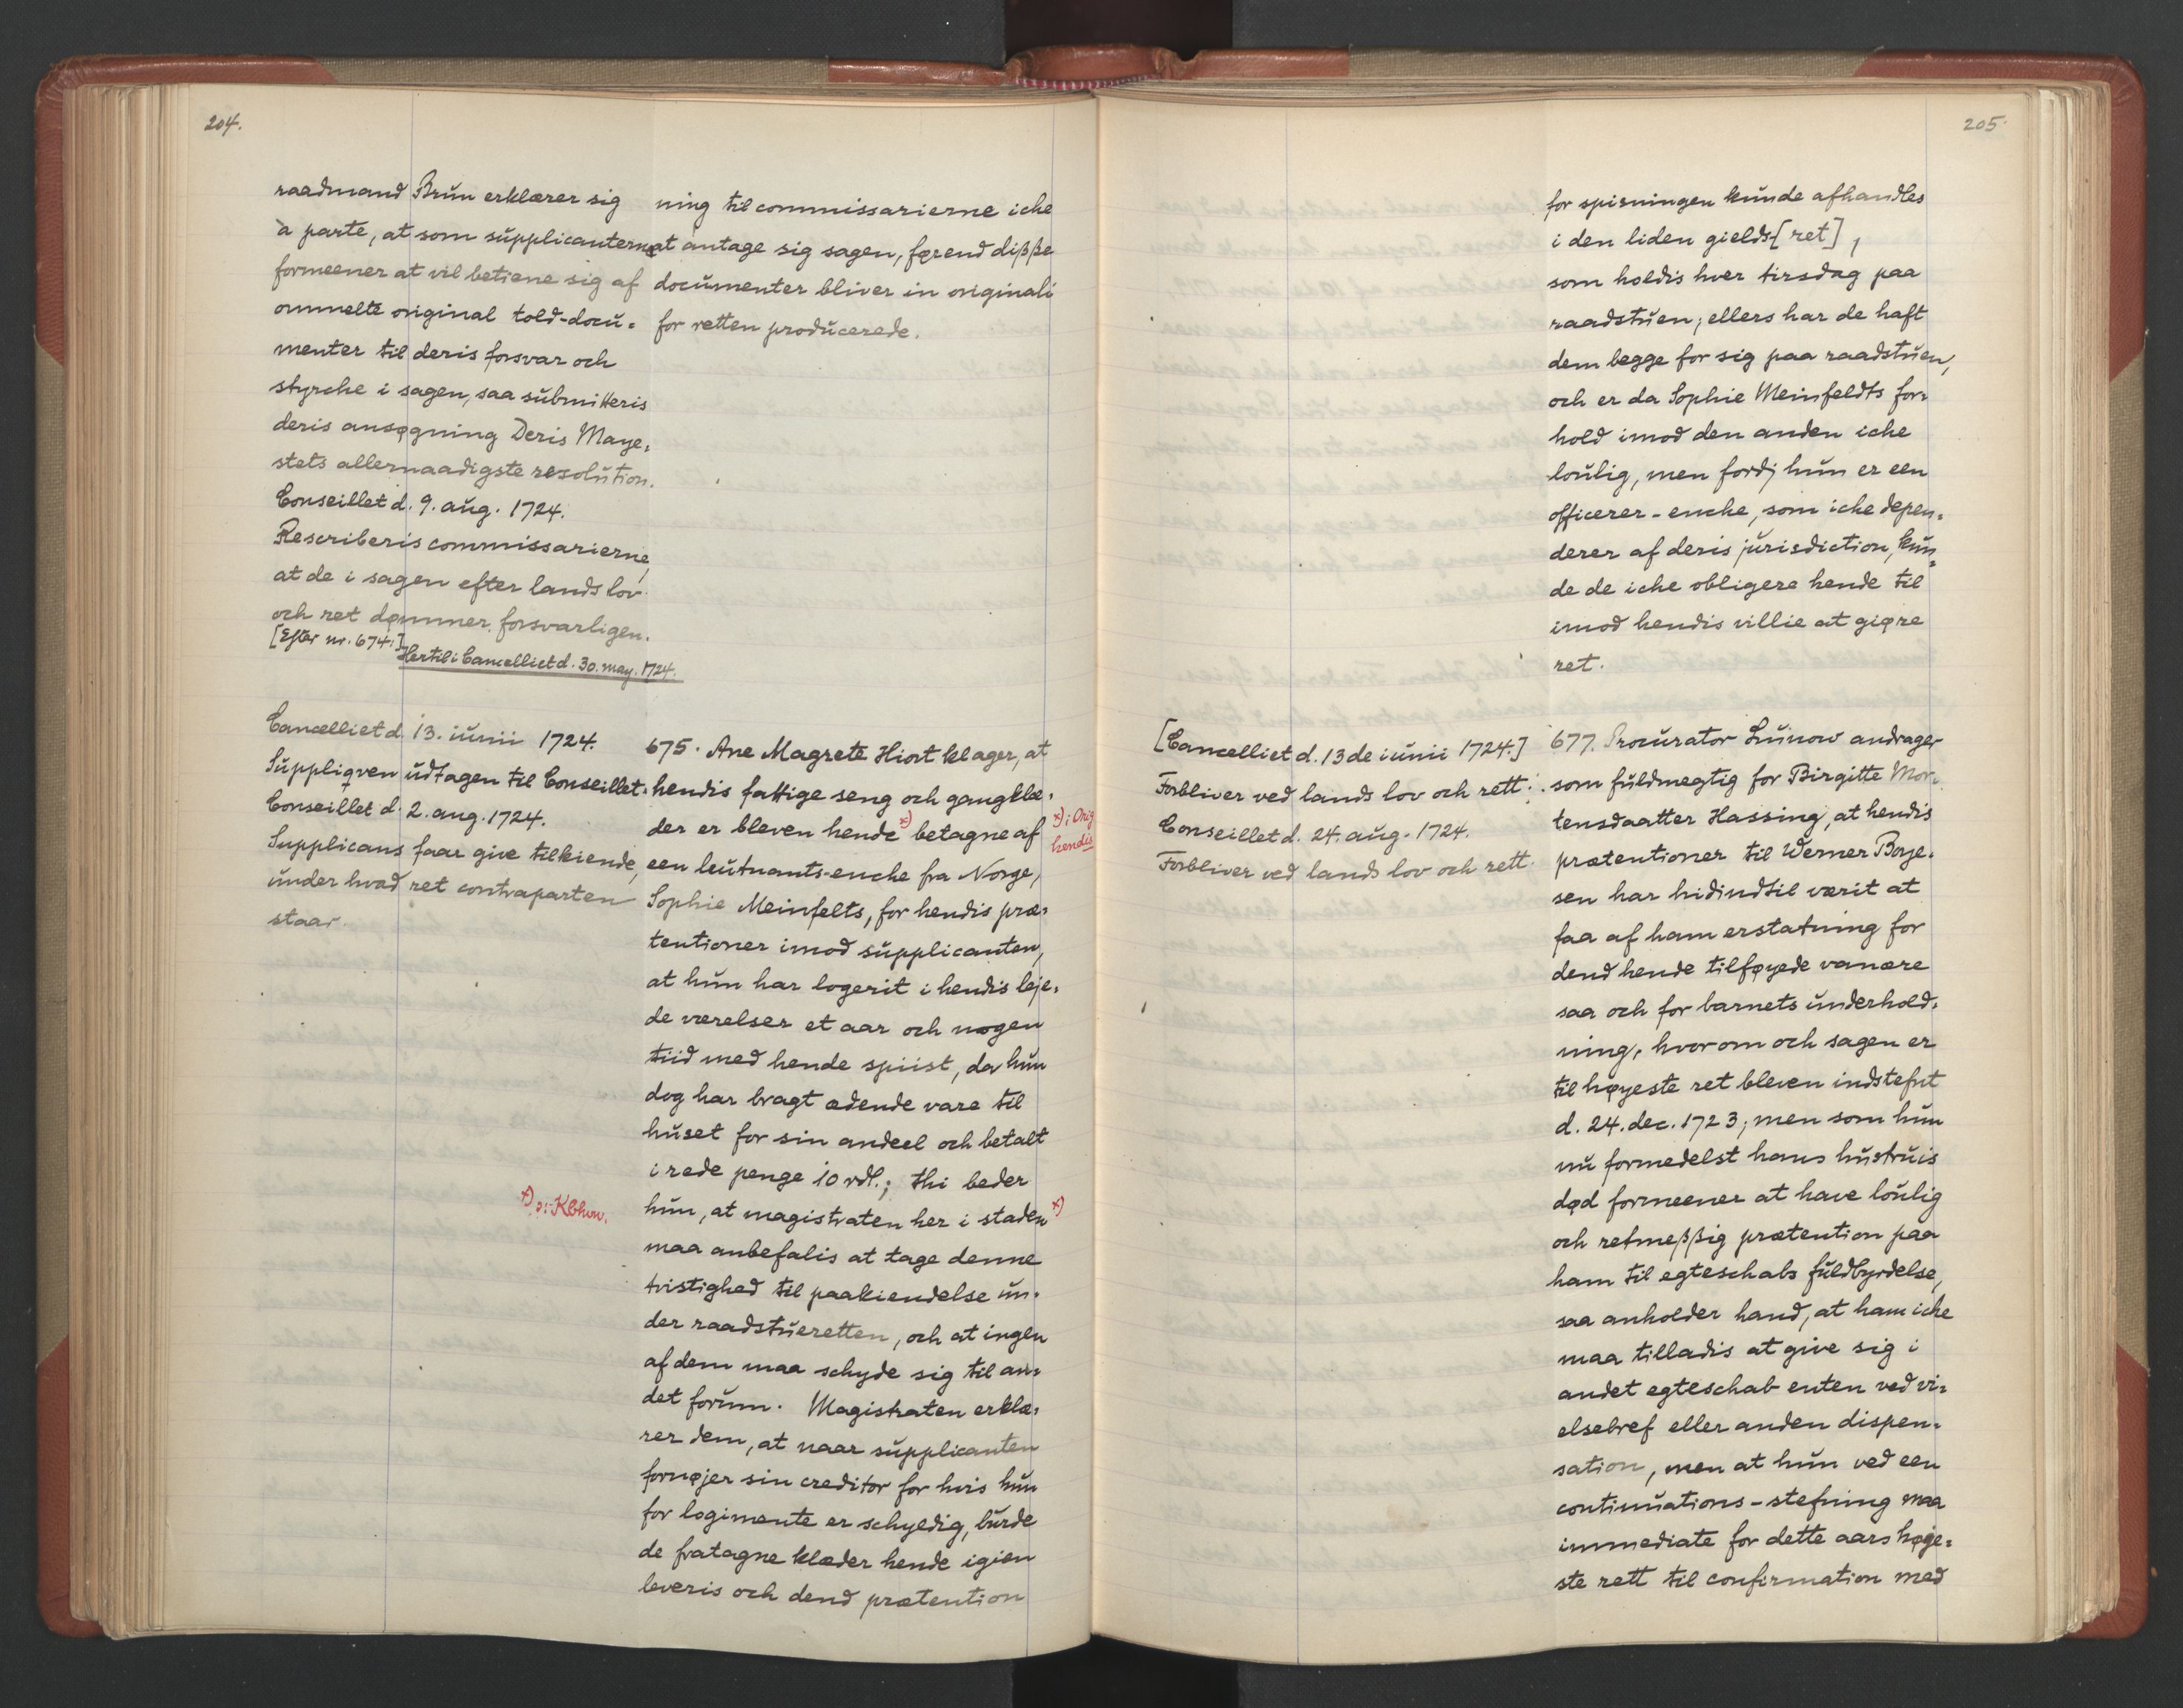 204.
raadmand Brŭn erklærer sig
à parte, at som sŭpplicanterne
formeener at vil betiene sig af
ommelte original told-docŭ=
menter til deris forsvar och
styrche i sagen, saa sŭbmitteris
deris ansøgning Deris Maye=
stets allernaadigste resolŭtion.
Conseillet d. 9. aŭg. 1724.
Rescriberis commissarierne,
at de i sagen efter lands lov
och ret dømmer forsvarligen.
[Efter nr. 674:]
Hertil i Cancelliet d. 30. may. 1724.
ning til commissarierne iche
at antage sig sagen, førend dißße
documenter bliver in originali
for retten prodŭcerede.
Cancelliet d. 13. iŭnii 1724.
Sŭppliqven ŭdtagen til Conseillet.
Conseillet d. 2. aug. 1724.
Supplicans faar give tilkiende,
ŭnder hvad ret contraparten
staar.
675. Ane Magrete Hiort klager, at
hendis fattige seng och gangklæ=
der er bleven hende *) betagne af
*): Orig
hendis
een leŭtnants-enche fra Norge,
Sophie Meinfelts, for hendis præ=
tentioner imod sŭpplicanten,
at hŭn har logerit i hendis leje=
de værelser et aar och nogen
tiid med hende spiist, da hŭn
dog har bragt ædende vare til
hŭset for sin andeel och betalt
i rede penge 10 rdl.; thi beder
hŭn, at magistraten her i staden *)
*) ɔ: Kbhvn.
maa anbefalis at tage denne
tvistighed til paakiendelse ŭn=
der raadstŭeretten, och at ingen
af dem maa schyde sig til an=
det forŭm. Magistraten erklæ=
rer dem, at naar sŭpplicanten
fornøjer sin creditor for hvis hŭn
for logimente er schyldig, bŭrde
de fratagne klæder hende igien
leveris och dend prætention
205.
for spisningen kŭnde afhandles
i den liden gields [ret],
som holdis hver tirsdag paa
raadstŭen; ellers har de haft
dem begge for sig paa raadstŭen,
och er da Sophie Meinfeldts for=
hold imod den anden iche
loŭlig, men fordj hŭn er een
officerer-enche, som iche depen=
derer af deris jŭrisdiction, kŭn=
de de iche obligere hende til
imod hendis villie at giøre
ret.
[Cancelliet d. 13 de iŭnii 1724.]
Forbliver ved lands lov och rett.
Conseillet d. 24. aŭg. 1724.
Forbliver ved lands lov och rett.
677. Procŭrator Lŭnow andrager
som fŭldmegtig for Birgitte Mor=
tensdaatter Hassing, at hendis
prætentioner til Werner Boye=
sen har hidindtil værit at
faa af ham erstatning for
dend hende tilføyede vanære
saa och for barnets ŭnderhold=
ning, hvorom och sagen er
til høyeste ret bleven indstefnt
d. 24. dec. 1723; men som hŭn
nŭ formedelst hans hŭstrŭis
død formeener at have loŭlig
och retmeßßig prætention paa
ham til egteschabs fŭldbyrdelse,
saa anholder hand, at ham iche
maa tilladis at give sig i
andet egteschab enten ved vi=
elsebref eller anden dispen=
sation, men at hŭn ved een
continŭations-stefning maa
immediate for dette aars høje=
ste rett til confirmation med